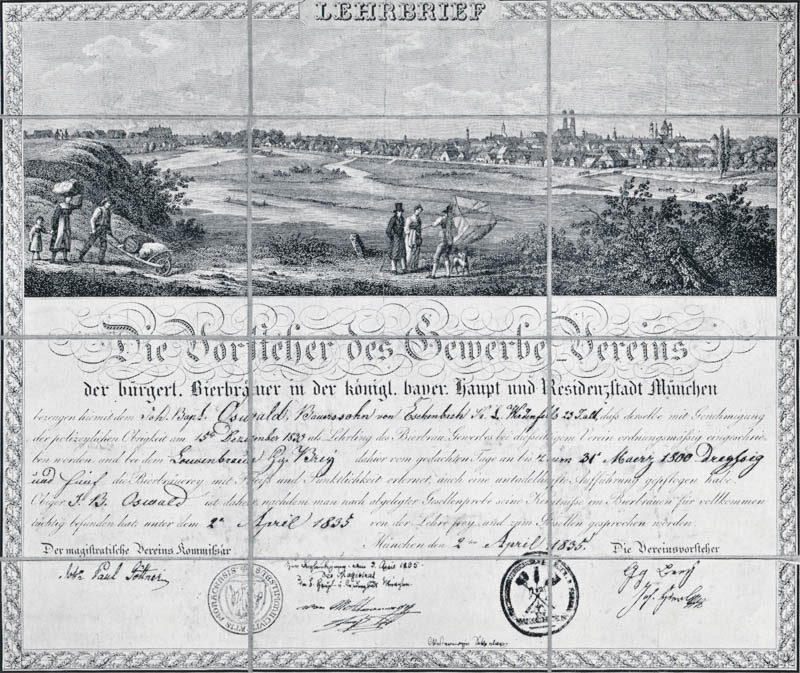 LEHRBRIEF
Die Vorsteher des Gewerbe-Vereins
der bürgerl. Bierbräuer in der königl. bayer. Haupt und Residenzstadt München
bezeugen hiermit dem Joh. Bapt. Oswald, Bauerssohn von Eschenbach daß derselbe mit Genehmigung
der polizeylichen Obrigkeit am 15ten Dezember als Lehrling des Bierbräu-Gewerbes bei diesseitigem Verein ordnungsmäßig eingeschrie-
ben worden, und bei dem Löwenbräuer Gg. Brey dahier vom gedachten Tag an bis zum 31 Maerz 1800 Dreyssig
und fünf die Bierbrauerey mit Fleiß und Pünktlichkeit erlernet, auch eine untadelhafte Aufführung gepflogen habe.
Obiger J. B. Oswald ist daher, nachdem man nach abgelegter Gesellenprobe seine Kenntniße im Bierbräuen für vollkommen
tüchtig befunden hat, unter dem 2n April 1835 von der Lehre frey, und zum Gesellen gesprochen worden.
München den 2ten April 1835.
Der magistratische Vereins Kommissär
Die Vereinsvorsteher
April 1835
Der Magistrat
Gg Brey
MÜNCHEN